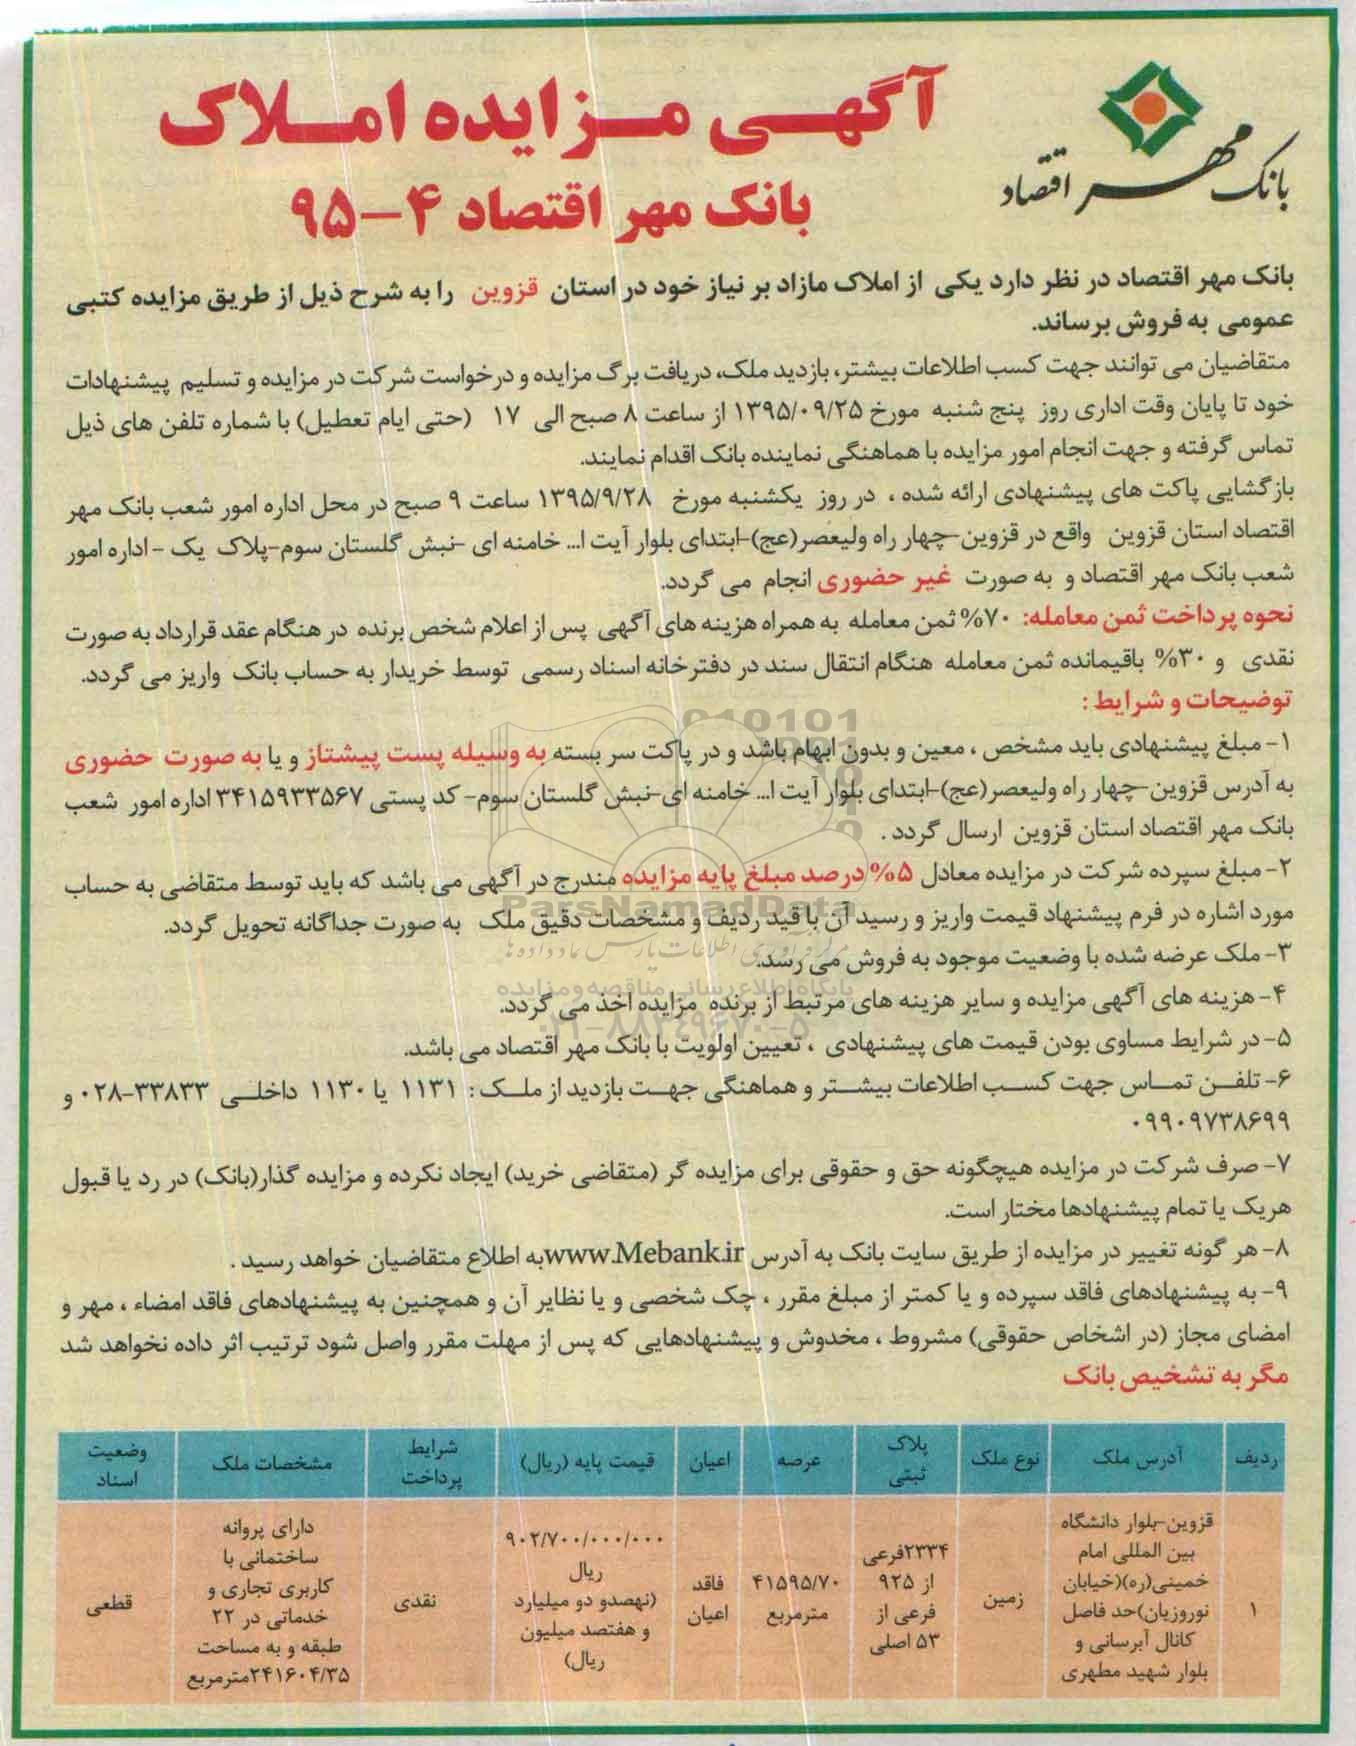 آگهی مزایده املاک
بانک مهر اقتصاد
بانک مهر اقتصاد ۴-۹۵
بانک مهر اقتصاد در نظر دارد یکی از املاک مازاد بر نیاز خود در استان قزوین را به شرح ذیل از طریق مزایده کتبی
عمومی به فروش برساند.
متقاضیان می توانند جهت کسب اطلاعات بیشتر، بازدید ملک، دریافت برگ مزایده و درخواست شرکت در مزایده و تسلیم پیشنهادات
خود تا پایان وقت اداری روز پنج شنبه مورخ ۱۳۹۵/۰۹/۲۵ از ساعت ۸ صبح الی ۱۷ (حتی ایام تعطیل) با شماره تلفن های ذیل
تماس گرفته و جهت انجام امور مزایده با هماهنگی نماینده بانک اقدام نمایند.
بازگشایی پاکت های پیشنهادی ارائه شده ، در روز یکشنبه مورخ ۱۳۹۵/۹/۲۸ ساعت ۹ صبح در محل اداره امور شعب بانک مهر
اقتصاد استان قزوین واقع در قزوین-چهار راه ولیعصر(عج)-ابتدای بلوار آیت ا... خامنه ای -نبش گلستان سوم-پلاک یک - اداره امور
شعب بانک مهر اقتصاد و به صورت غیر حضوری انجام می گردد.
نحوه پرداخت ثمن معامله: ۷۰% ثمن معامله به همراه هزینه های آگهی پس از اعلام شخص برنده در هنگام عقد قرارداد به صورت
نقدی و ۳۰% باقیمانده ثمن معامله هنگام انتقال سند در دفترخانه اسناد رسمی توسط خریدار به حساب بانک واریز می گردد.
توضیحات و شرایط :
۱- مبلغ پیشنهادی باید مشخص ، معین و بدون ابهام باشد و در پاکت سر بسته به وسیله پست پیشتاز و یا به صورت حضوری
به آدرس قزوین-چهار راه ولیعصر(عج)-ابتدای بلوار آیت ا... خامنه ای-نبش گلستان سوم- کد پستی ۳۴۱۵۹۳۳۵۶۷ اداره امور شعب
بانک مهر اقتصاد استان قزوین ارسال گردد .
۲- مبلغ سپرده شرکت در مزایده معادل ۵% درصد مبلغ پایه مزایده مندرج در آگهی می باشد که باید توسط متقاضی به حساب
مورد اشاره در فرم پیشنهاد قیمت واریز و رسید آن با قید ردیف و مشخصات دقیق ملک به صورت جداگانه تحویل گردد.
ParsNamadData
مرکز فرآوری اطلاعات پارس نماد داده ها
۳- ملک عرضه شده با وضعیت موجود به فروش می رسد.
پایگاه اطلاع رسانی مناقصه و مزایده
۴- هزینه های آگهی مزایده و سایر هزینه های مرتبط از برنده مزایده اخذ می گردد.
۰۲۱-۸۸۳۴۹۶۷۰-۵
۵- در شرایط مساوی بودن قیمت های پیشنهادی ، تعیین اولویت با بانک مهر اقتصاد می باشد.
۶- تلفن تماس جهت کسب اطلاعات بیشتر و هماهنگی جهت بازدید از ملک : ۱۱۳۱ یا ۱۱۳۰ داخلی ۳۳۸۳۳-۰۲۸ و
۰۹۹۰۹۷۳۸۶۹۹
۷- صرف شرکت در مزایده هیچگونه حق و حقوقی برای مزایده گر (متقاضی خرید) ایجاد نکرده و مزایده گذار(بانک) در رد یا قبول
هریک یا تمام پیشنهادها مختار است.
۸- هر گونه تغییر در مزایده از طریق سایت بانک به آدرس www.Mebank.ir به اطلاع متقاضیان خواهد رسید .
۹- به پیشنهادهای فاقد سپرده و یا کمتر از مبلغ مقرر ، چک شخصی و یا نظایر آن و همچنین به پیشنهادهای فاقد امضاء ، مهر و
امضای مجاز (در اشخاص حقوقی) مشروط ، مخدوش و پیشنهادهایی که پس از مهلت مقرر واصل شود ترتیب اثر داده نخواهد شد
مگر به تشخیص بانک
ردیف
آدرس ملک
نوع ملک
پلاک
ثبتی
عرصه
اعیان
قیمت پایه (ریال)
شرایط
پرداخت
مشخصات ملک
وضعیت
اسناد
۱
قزوین-بلوار دانشگاه
بین المللی امام
خمینی(ره)(خیابان
نوروزیان)حد فاصل
کانال آبرسانی و
بلوار شهید مطهری
زمین
۲۳۳۴فرعی
از ۹۲۵
فرعی از
۵۳ اصلی
۴۱۵۹۵/۷۰
مترمربع
فاقد
اعیان
۹۰۲/۷۰۰/۰۰۰/۰۰۰
ریال
(نهصدو دو میلیارد
و هفتصد میلیون
ریال)
نقدی
دارای پروانه
ساختمانی با
کاربری تجاری و
خدماتی در ۲۲
طبقه و به مساحت
۲۴۱۶۰۴/۳۵مترمربع
قطعی